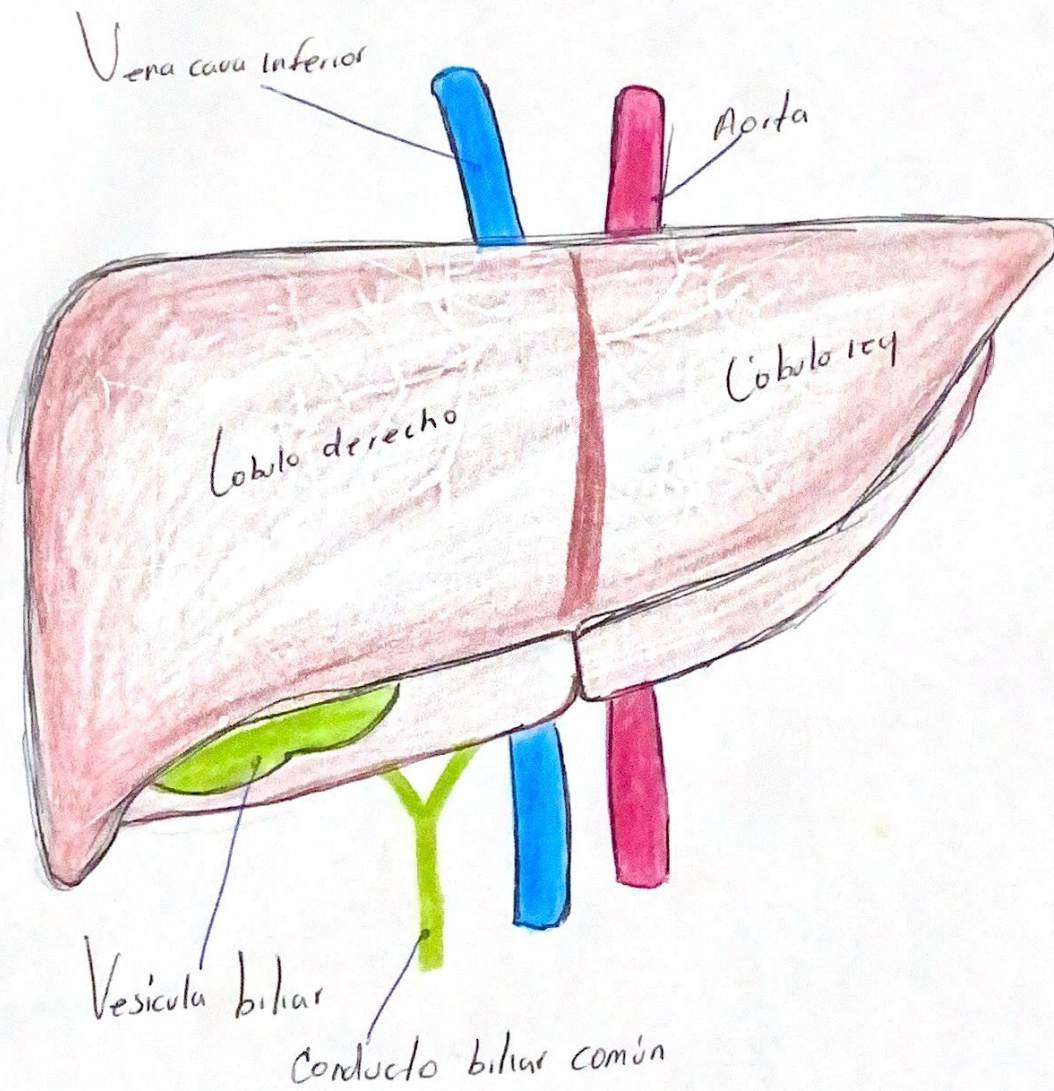 Vena cava inferior
Aorta
Lóbulo izq
Lobulo derecho
Vesícula biliar
Conducto biliar común